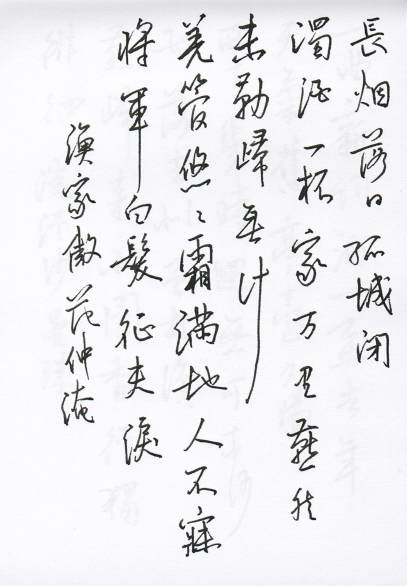 長烟落日孤城闭
濁酒一杯家万里燕然
未勒歸無计
羌管悠〻霜满地人不寐
将軍白髮征夫淚
漁家傲范仲淹